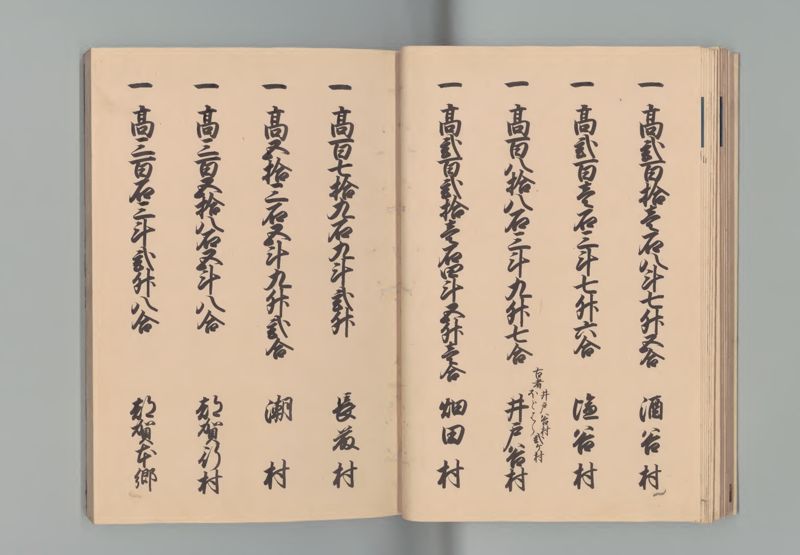 一 高弐百拾壱石八斗七升五合 酒谷村
一 高弐百壱石三斗七升六合 塩谷村
一 高百八拾八石三斗九升七合 古者 井戸谷村 弐ヶ村 井戸谷村
一 高弐百弐拾壱石四斗五升壱合 畑田村
一 高百七拾九石九斗弐升 長藤村
一 高五拾三石五斗九升弐合 潮村
一 高三百五拾八石五斗八合 都賀行村
一 高三百石三斗弐升八合 都賀本郷